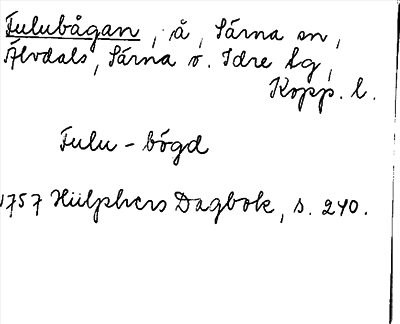 Fulubågan, å, Särna sn,
Älvdals, Särna o. Idre tg,
Kopp. l.
Fulu-bógd
1757 Hülphers Dagbok, s. 240.